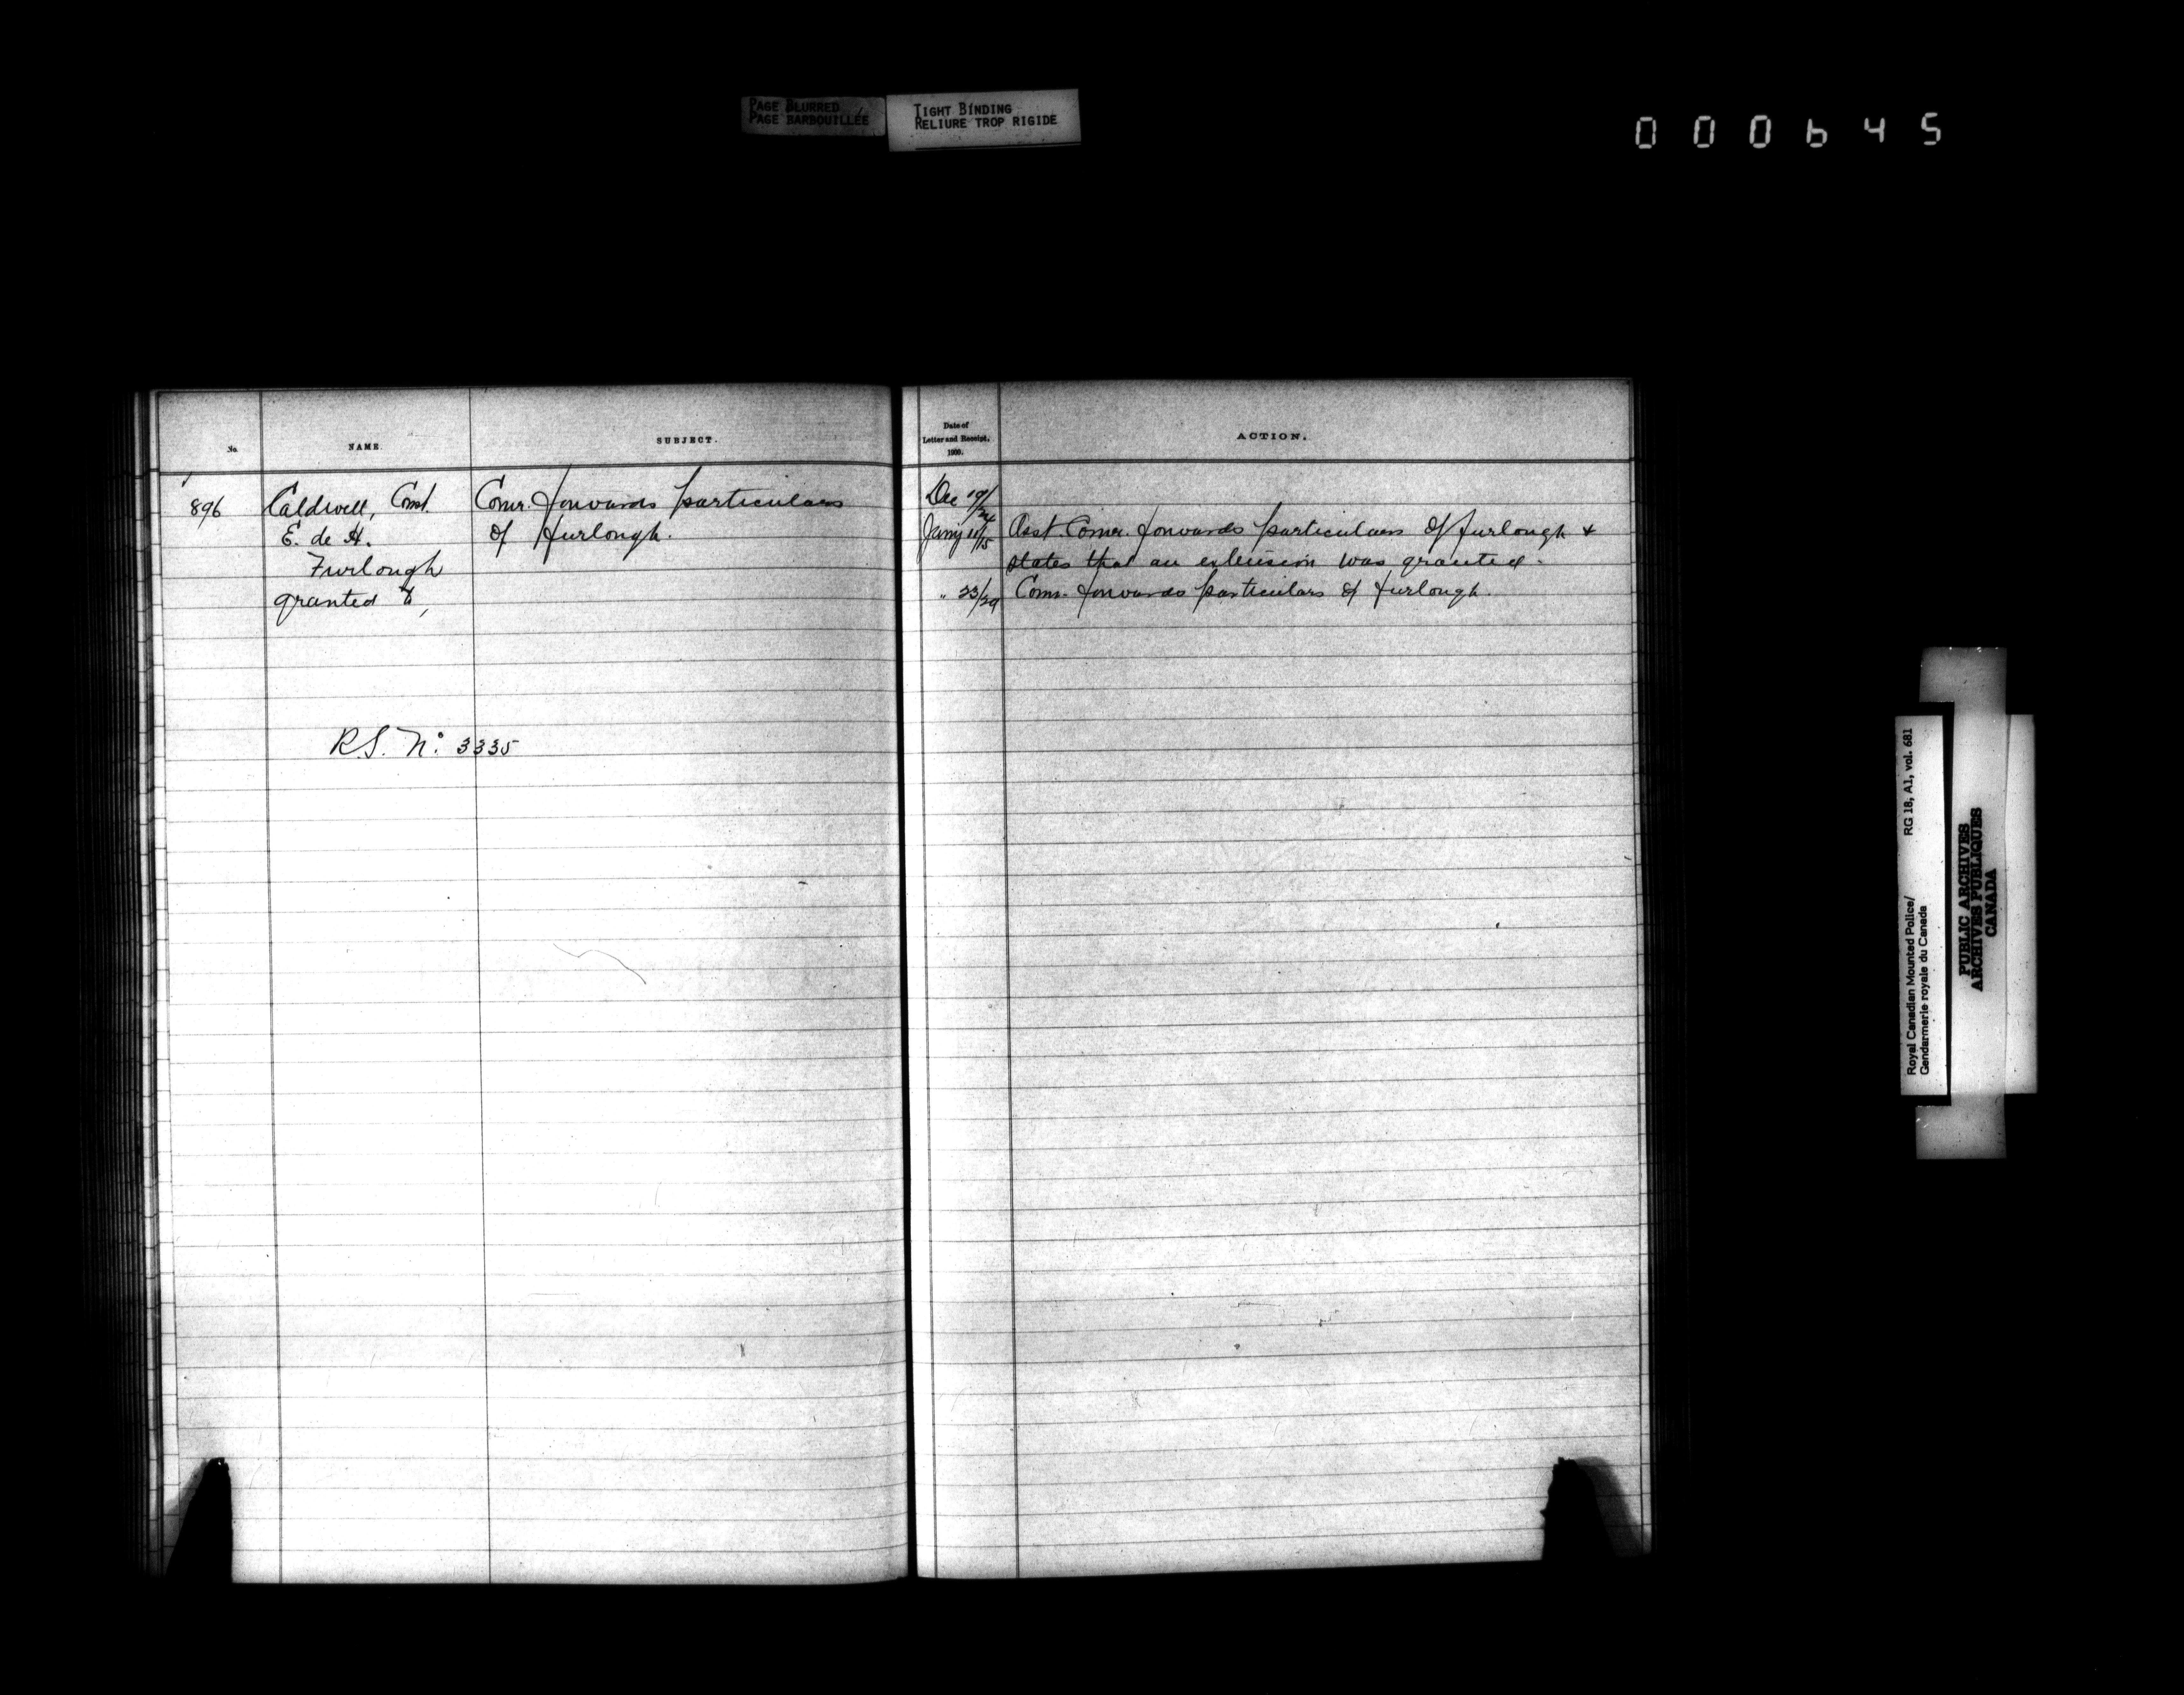 PAGE BLURRED
PAGE BARBOUILLÉE
TIGHT BINDING
RELIURE TROP RIGIDE
000645
No.
NAME.
SUBJECT.
Date of
Letter and Receipt.
1909.
ACTION.
896
Caldwell, Const.
E. de H.
Furlough
granted to,
Comr. forwards particulars
of furlough.
R.S. No. 3335
Dec 19/24
Jany 11/15
Asst. Comr. forwards particulars of furlough &
states that an extension was granted.
" 23/29
Comr. forwards particulars of furlough.
Royal Canadian Mounted Police/
Gendarmerie royale du Canada
RG 18, A1, vol. 681
PUBLIC ARCHIVES
ARCHIVES PUBLIQUES
CANADA